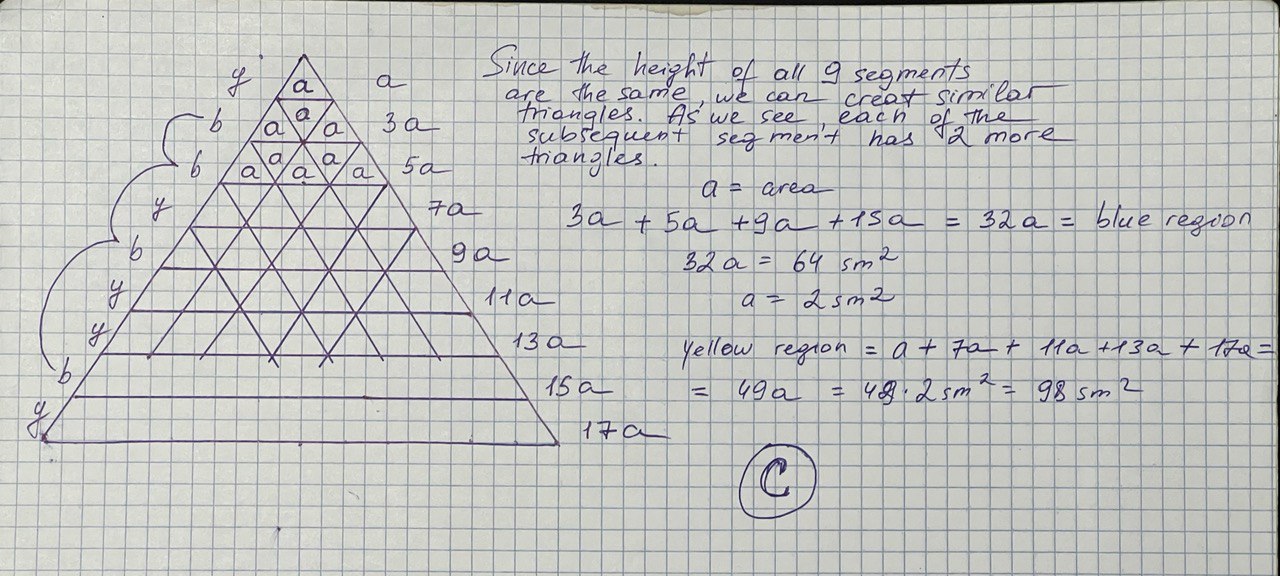 Since the height of all 9 segments
are the same, we can creat similar
triangles. As we see, each of the
subsequent segment has 2 more
triangles.
a = area
3a + 5a + 9a + 15a = 32a = blue region
32a = 64 sm²
a = 2sm²
Yellow region = a + 7a + 11a + 13a + 17a =
= 49a = 49·2sm² = 98 sm²
C
y a a
b a a a 3a
b a a a a a 5a
y 7a
b 9a
y 11a
y 13a
b 15a
y 17a